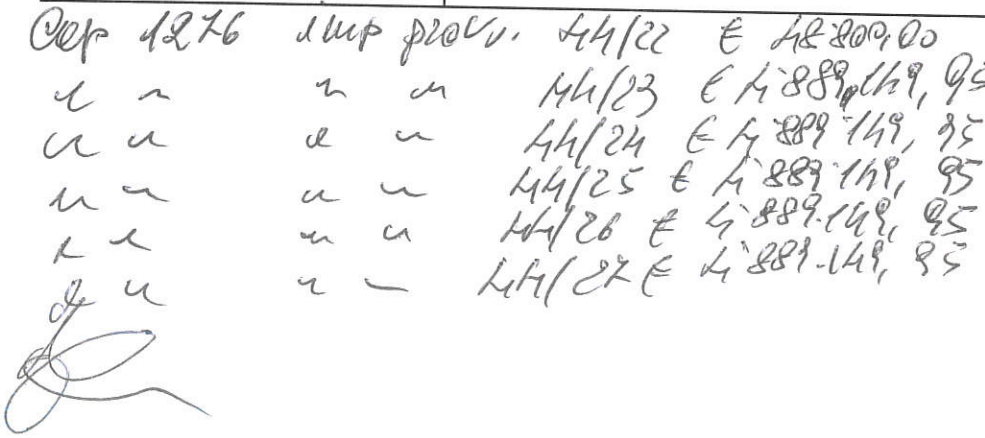 Cap 1276 imp prov. 44/22 € 48'800,00
" " " " 44/23 € 4'889.149,95
" " " " 44/24 € 4'889'149,95
" " " " 44/25 € 4'889'149,95
" " " " 44/26 € 4'889.149,95
" " " " 44/27 € 4'889.149,95